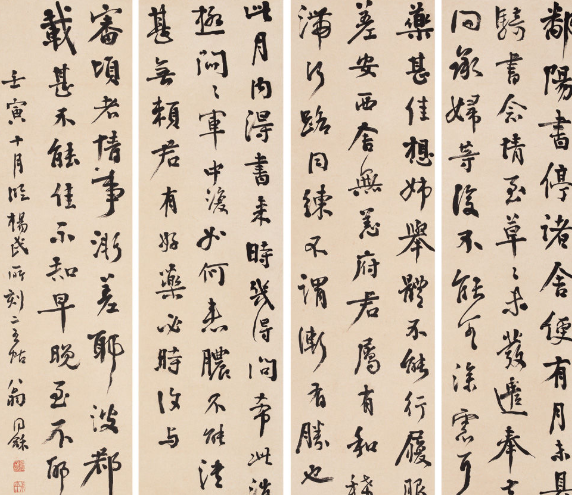 鄱陽書停諸舍便有月未具
騎書念情至草〻未發遣奉
同敬婦等復不能可深憲可
藥甚佳想姊舉體不能行履眠
差安西舍無恙府君屬有和
滯行路同練不謂漸有勝也
此月內得書來時幾得問希此
極問〻軍中渡如何患膿不能潰
甚無賴君有好藥必時復與
審頃者情事漸差耶彼郡
載甚不能佳不知早晚至不耶
壬寅十月臨楊氏所刻二王帖 翁同龢